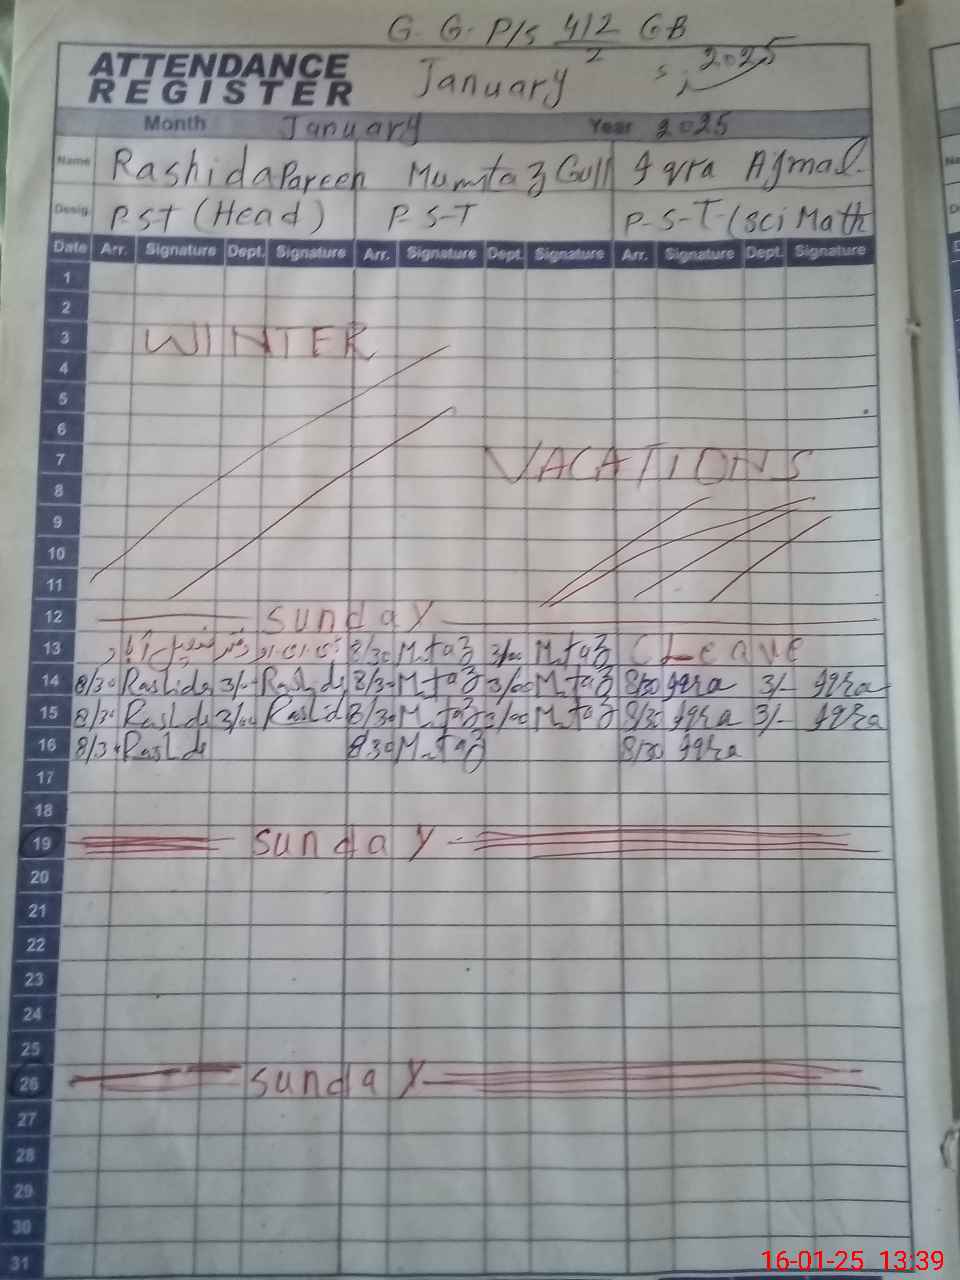 G. G. P/S 412 GB
2
ATTENDANCE
REGISTER
January 2025
Month January Year 2025
Name Rashida Pareen Mumtaz Gull Iqra Ajmal
Desig. P.ST (Head) P-S-T P-S-T-(Sci Math
Date Arr. Signature Dept. Signature Arr. Signature Dept. Signature Arr. Signature Dept. Signature
1
2
3 WINTER
4
5
6
7 VACATIONS
8
9
10
11
12 sunday
13 8/30 M.taz 3/00 M.taz C Leave
14 8/30 Rashida 3/- Rashida 8/30 M.taz 3/00 M.taz 8/30 Iqra 3/- Iqra
15 8/30 Rashida 3/00 Rashid 8/30 M.taz 3/00 M.taz 8/30 Iqra 3/- Iqra
16 8/30 Rashida 8.30 M.taz 8/30 Iqra
17
18
19 sunday
20
21
22
23
24
25
26 sunday
27
28
29
30
31
16-01-25 13:39